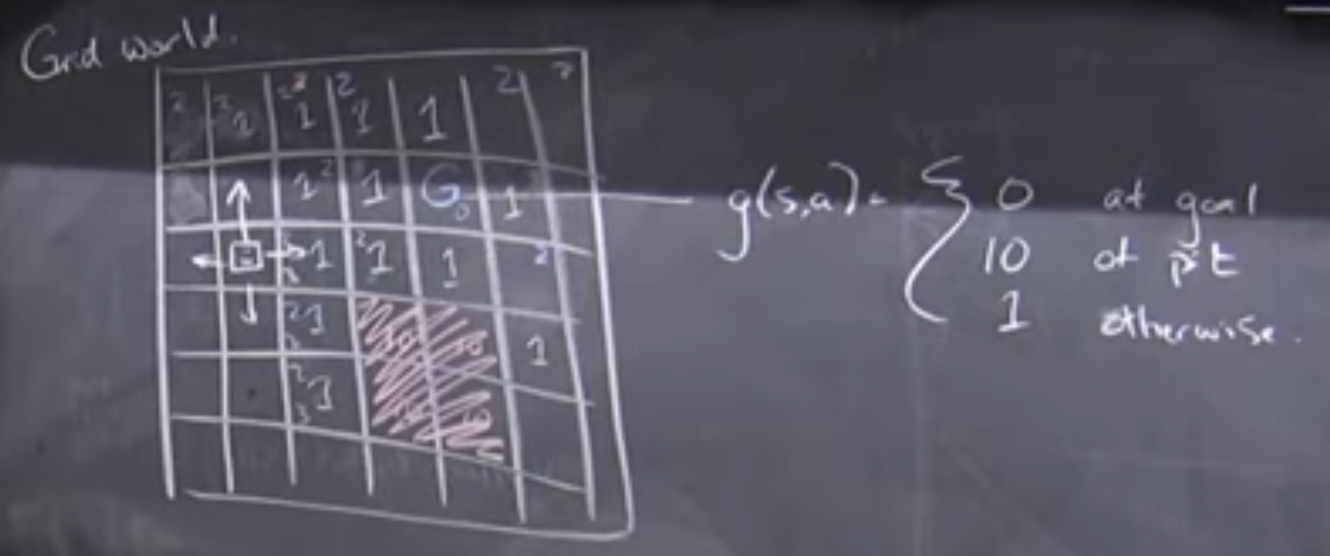 Grid world.
2 3 1 2 1 2 1 1 2
1 2 1 G 0 1
1 2 1 1 2
2 1 10 10 1
2 3 1 10 10
g(s,a) = { 0 at goal
10 at pit
1 otherwise.